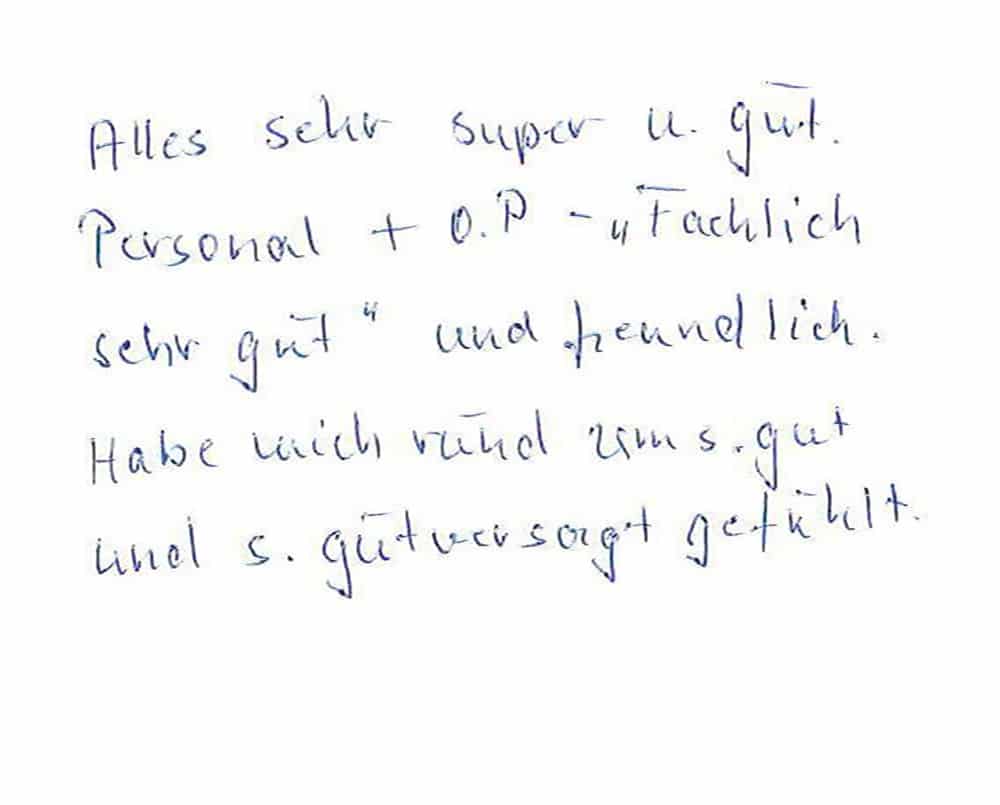 Alles sehr super u. gut.
Personal + O.P - „Fachlich
sehr gut“ und freundlich.
Habe mich rund um s. gut
und s. gut versorgt gefühlt.